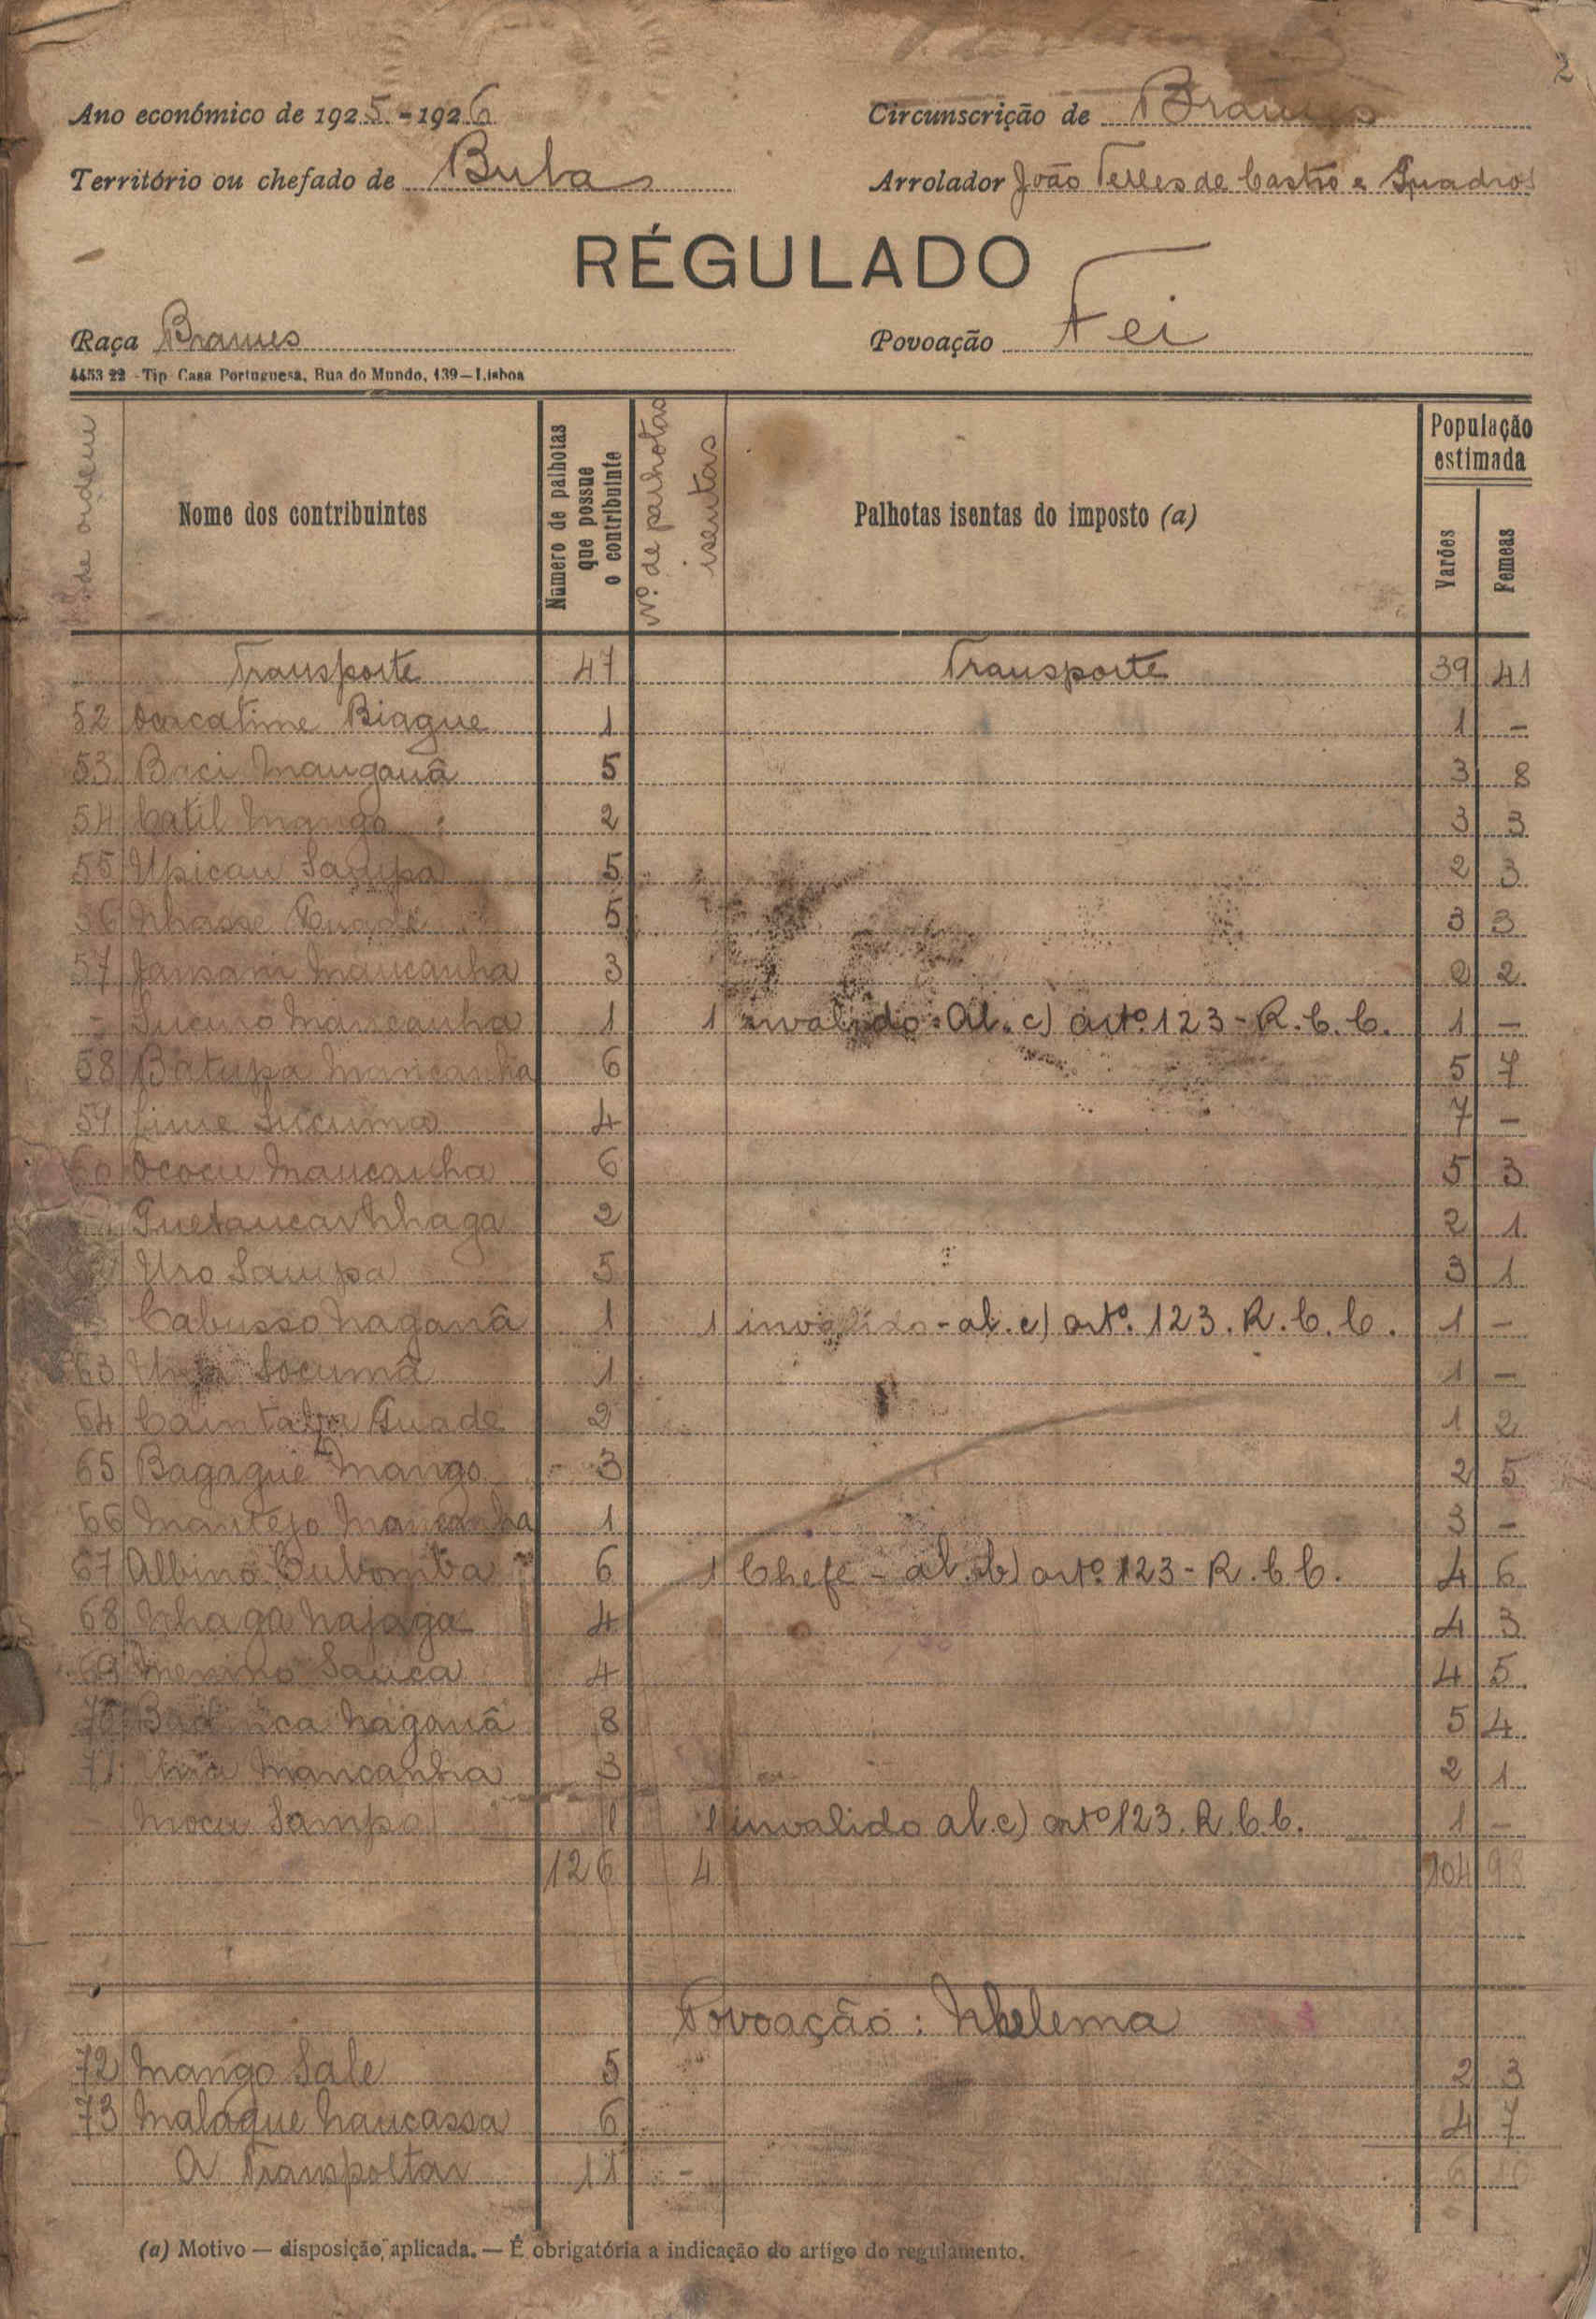 2
Ano económico de 1925-1926 Circunscrição de Brames
Território ou chefado de Bula Arrolador João Telles de Castro e Quadros
RÉGULADO
Raça Brames Povoação Fei
4453 22 - Tip Casa Portuguesa, Rua do Mundo, 139—Lisboa
de ordem Nome dos contribuintes Número de palhotas que possue o contribuinte Nº de palhotas isentas Palhotas isentas do imposto (a) População estimada Varões Femeas
Transporte 47 Transporte 39 41
52 Biague 1 1 -
53 Baci 5 3 8
54 Catil Mango 2 3 3
55 Upicau Sampa 5 2 3
56 5 3 3
57 Jansam Mancanha 3 2 2
- Mancanha 1 1 invalido: Al. c) artº 123 - R. C. C. 1 -
58 Batupa Mancanha 6 5 7
59 4 7 -
60 Ococu Mancanha 6 5 3
Nhaga 2 2 1
Uro Sampa 5 3 1
Cabusso Naganã 1 1 invalido - al. c) artº. 123. R. C. C. 1 -
63 Socumã 1 1 -
64 Quade 2 1 2
65 Bagague Mango 3 2 5
66 Mantejo Mancanha 1 3 -
67 Albino 6 1 Chefe - al. b) artº 123 - R. C. C. 4 6
68 Nhaga Najaga 4 4 3
69 Menino Sanca 4 4 5
70 Naganã 8 5 4
71 Mancanha 3 2 1
- Mocu Sampa 1 1 invalido al. c) artº 123. R. C. C. 1 -
126 4 104 98
Povoação: Nhelema
72 Mango Sale 5 2 3
73 Malague Naucassa 6 4 7
A Transportar 11 - 6 10
(a) Motivo — disposição aplicada. — É obrigatória a indicação do artigo do regulamento.